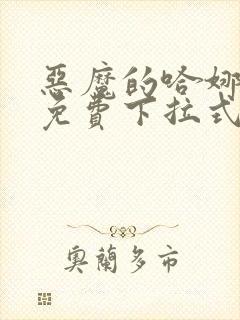 惡魔的哈娜
免費下拉式
奧蘭多市